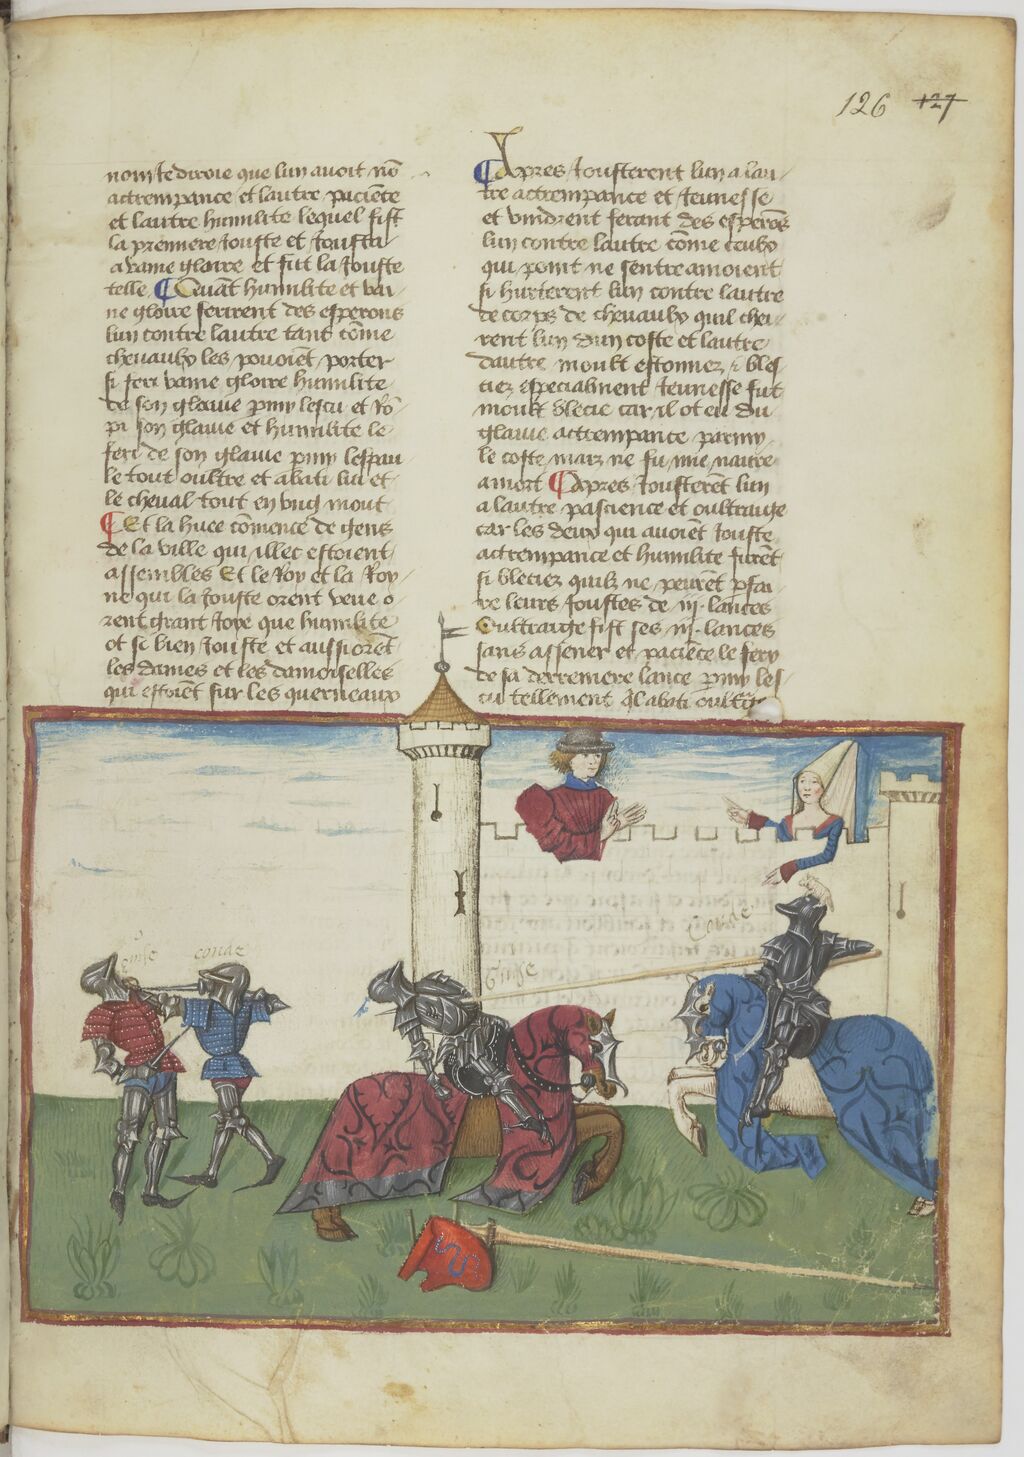 126 127
nom te diroie que lun avoit nō
actrempance et lautre pacience
et lautre humilite lequel fist
la premiere Jouste et Jousta
a vaine gloire et fut la Jouste
telle Quāt humilite et vai
ne gloire ferirent des esperons
lun contre lautre tant cōme
chevaulx les povoiēt porter
si feri vaine gloire humilite
de son glaive pmy lescu et rō
pi son glaive et humilite le
feri de son glaive pmy lespau
le tout oultre et abati lui et
le cheval tout en ung mont
Et la huee cōmence de gens
de la ville qui illec estoient
assembles Et le Roy et la Roy
ne qui la Jouste orent veue o
rent grant Joye que humilite
ot si bien Jouste et aussi orēt
les dames et les damoiselles
qui estoiēt sur les querneaux
Apres Jousterent lun a lau
tre actrempance et Jeunesse
et vindrent ferant des esperōs
lun contre lautre cōme ceulx
qui point ne sentreamoient
si hurterent lun contre lautre
de corps de chevaulx quil chei
rent lun dun coste et lautre
dautre moult estonnez & bles
ciez especialment Jeunesse fut
moult blecie car il ot eu du
glaive actrempance parmy
le coste maiz ne fu mie navre
a mort Apres Jousterēt lun
a lautre pascience et oultraige
car les deux qui avoiēt Jouste
actrempance et humilite furēt
si bleciez quilz ne peurēt pfai
re leurs Joustes de iij lances
Oultraige fist ses iij lances
sans assener et paciēce le fery
de sa derreniere lance pmy les
cu tellement ql abati oultrge
conde
conde